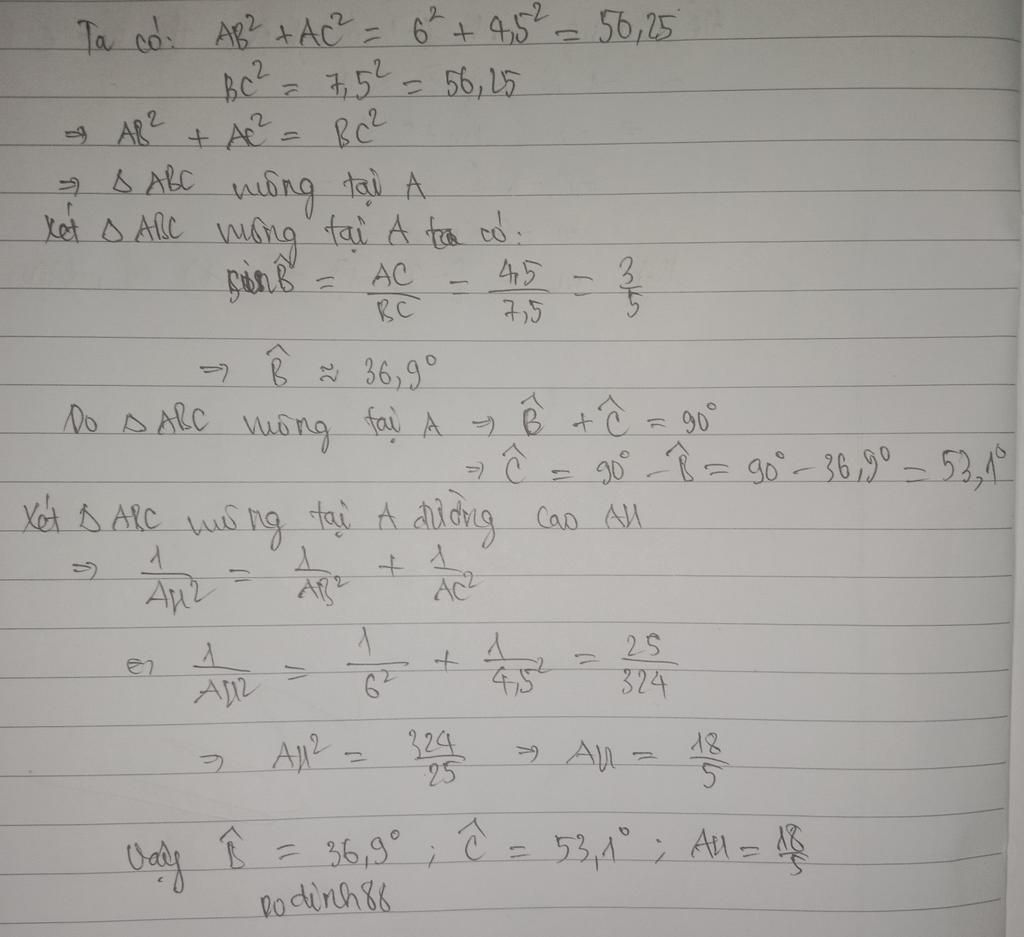 Ta có: AB² + AC² = 6² + 4,5² = 56,25
BC² = 7,5² = 56,25
⇒ AB² + AC² = BC²
⇒ Δ ABC vuông tại A
Xét Δ ABC vuông tại A ta có:
sin B̂ = AC/BC = 4,5/7,5 = 3/5
⇒ B̂ ≈ 36,9°
Do Δ ABC vuông tại A ⇒ B̂ + Ĉ = 90°
⇒ Ĉ = 90° - B̂ = 90° - 36,9° = 53,1°
Xét Δ ABC vuông tại A đường cao AH
⇒ 1/AH² = 1/AB² + 1/AC²
⇔ 1/AH² = 1/6² + 1/4,5² = 25/324
⇒ AH² = 324/25 ⇒ AH = 18/5
Vậy B̂ = 36,9° ; Ĉ = 53,1° ; AH = 18/5
Dodinh86